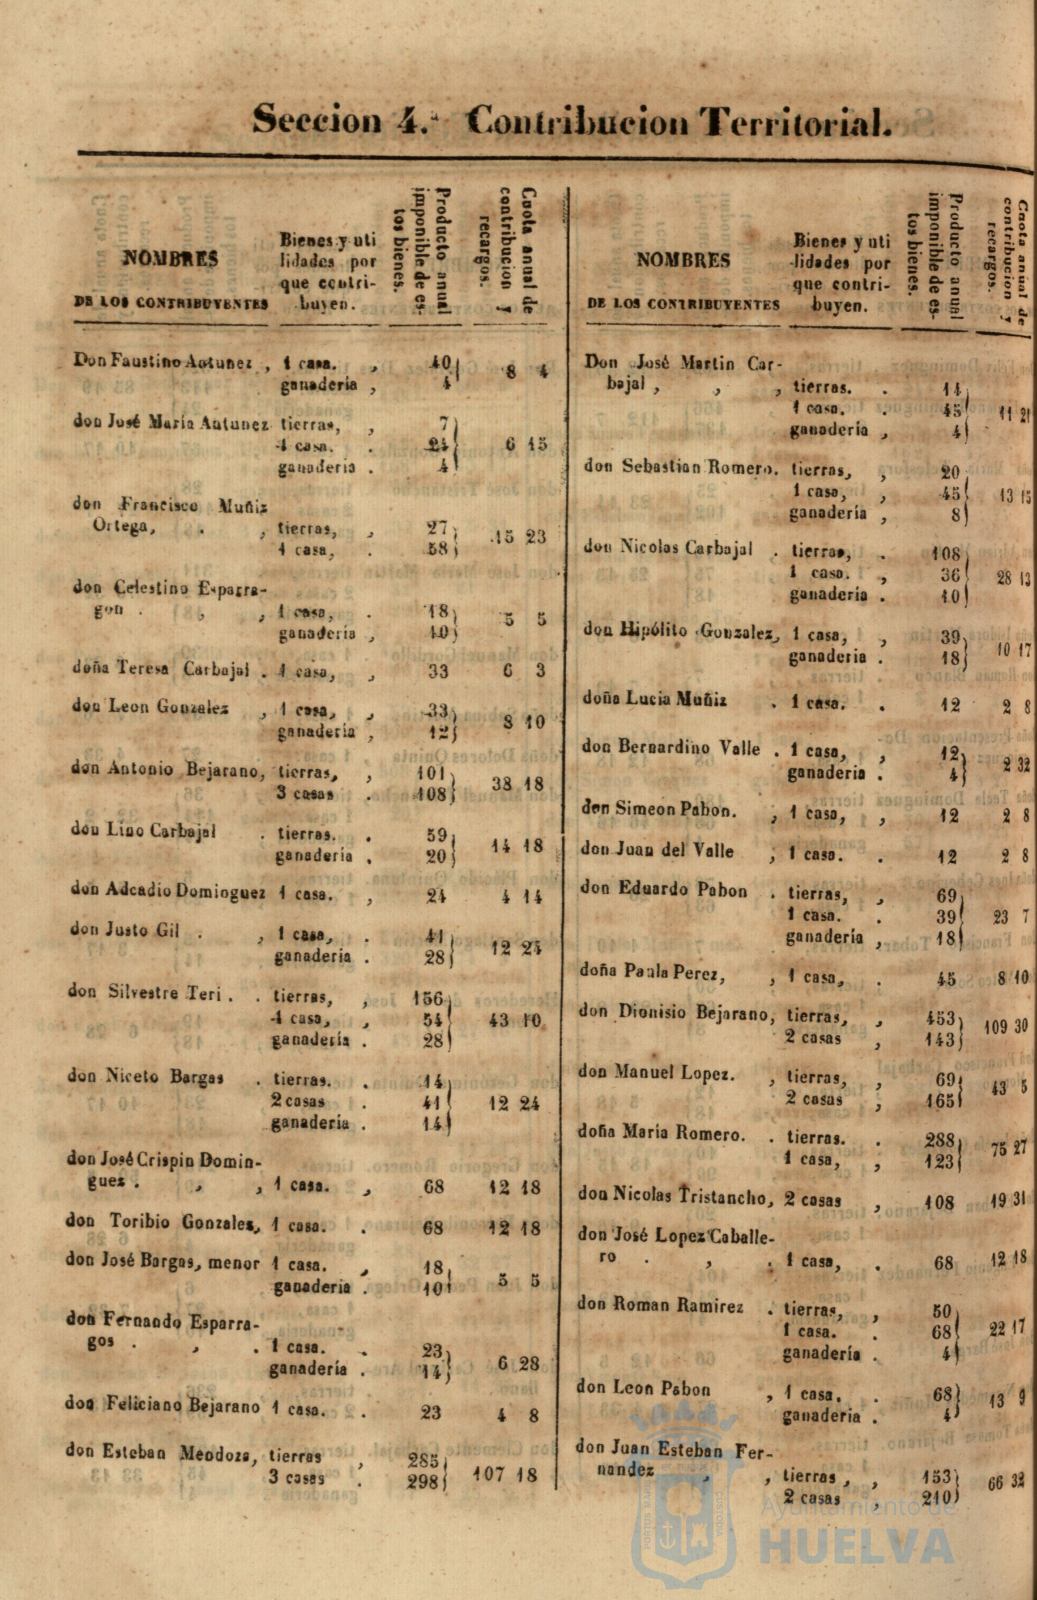 Seccion 4.ª Contribucion Territorial.
NOMBRES
DE LOS CONTRIBUYENTES
Bienes y uti
lidades por
que contri-
buyen.
Producto anual
imponible de es-
tos bienes.
Cuota anual de
contribucion y
recargos.
Don Faustino Antunez , 1 casa. , 40
ganadería , 4 } 8 4
don José María Antunez tierras, , 7
1 casa. . 24 } 6 15
ganaderia . 4
don Francisco Muñiz
Ortega, . , tierras, 27 } 15 23
1 casa, . 58
don Celestino Esparra-
gon . , , 1 casa, . 18 } 5 5
ganaderia , 10
doña Teresa Carbajal . 1 casa, , 33 6 3
don Leon Gonzalez , 1 casa, , 33 } 8 10
ganadería , 12
don Antonio Bejarano, tierras, , 101 } 38 18
3 casas . 108
don Lino Carbajal . tierras. . 59 } 14 18
ganadería , 20
don Adcadio Dominguez 1 casa. , 24 4 14
don Justo Gil . , 1 casa, . 41 } 12 24
ganaderia . 28
don Silvestre Teri . . tierras, , 156
1 casa, , 54 } 43 10
ganadería . 28
don Niceto Bargas . tierras. . 14
2 casas . 41 } 12 24
ganadería . 14
don José Crispin Domin-
guez . , , 1 casa. , 68 12 18
don Toribio Gonzales, 1 casa. . 68 12 18
don José Bargas, menor 1 casa. , 18 } 5 5
ganaderia . 10
don Fernando Esparra-
gos . , . 1 casa. . 23 } 6 28
ganadería . 14
don Feliciano Bejarano 1 casa. . 23 4 8
don Esteban Mendoza, tierras , 285 } 107 18
3 casas . 298
NOMBRES
DE LOS CONTRIBUYENTES
Bienes y uti
lidades por
que contri-
buyen.
Producto anual
imponible de es-
tos bienes.
Cuota anual de
contribucion y
recargos.
Don José Martin Car-
bajal , , , tierras. . 14
1 casa. . 45 } 11 21
ganadería , 4
don Sebastian Romero. tierras, , 20
1 casa, , 45 } 13 15
ganadería , 8
don Nicolas Carbajal . tierras, . 108
1 casa. , 36 } 28 13
ganadería . 10
don Hipólito Gonzalez, 1 casa, , 39 } 10 17
ganaderia . 18
doña Lucia Muñiz . 1 casa. . 12 2 8
don Bernardino Valle . 1 casa, , 12 } 2 32
ganaderia . 4
don Simeon Pabon. , 1 casa, , 12 2 8
don Juan del Valle , 1 casa. . 12 2 8
don Eduardo Pabon . tierras, , 69
1 casa. . 39 } 23 7
ganadería , 18
doña Paula Perez, , 1 casa, . 45 8 10
don Dionisio Bejarano, tierras, , 453 } 109 30
2 casas , 143
don Manuel Lopez. , tierras, , 69 } 43 5
2 casas , 165
doña Maria Romero. . tierras. . 288 } 75 27
1 casa, , 123
don Nicolas Tristancho, 2 casas , 108 19 31
don José Lopez Caballe-
ro . , . 1 casa, . 68 12 18
don Roman Ramirez . tierras, , 50
1 casa. . 68 } 22 17
ganadería . 4
don Leon Pabon , 1 casa. . 68 } 13 9
ganaderia . 4
don Juan Esteban Fer-
nandez , , tierras , , 153 } 66 32
2 casas , 210
Ayuntamiento de
HUELVA